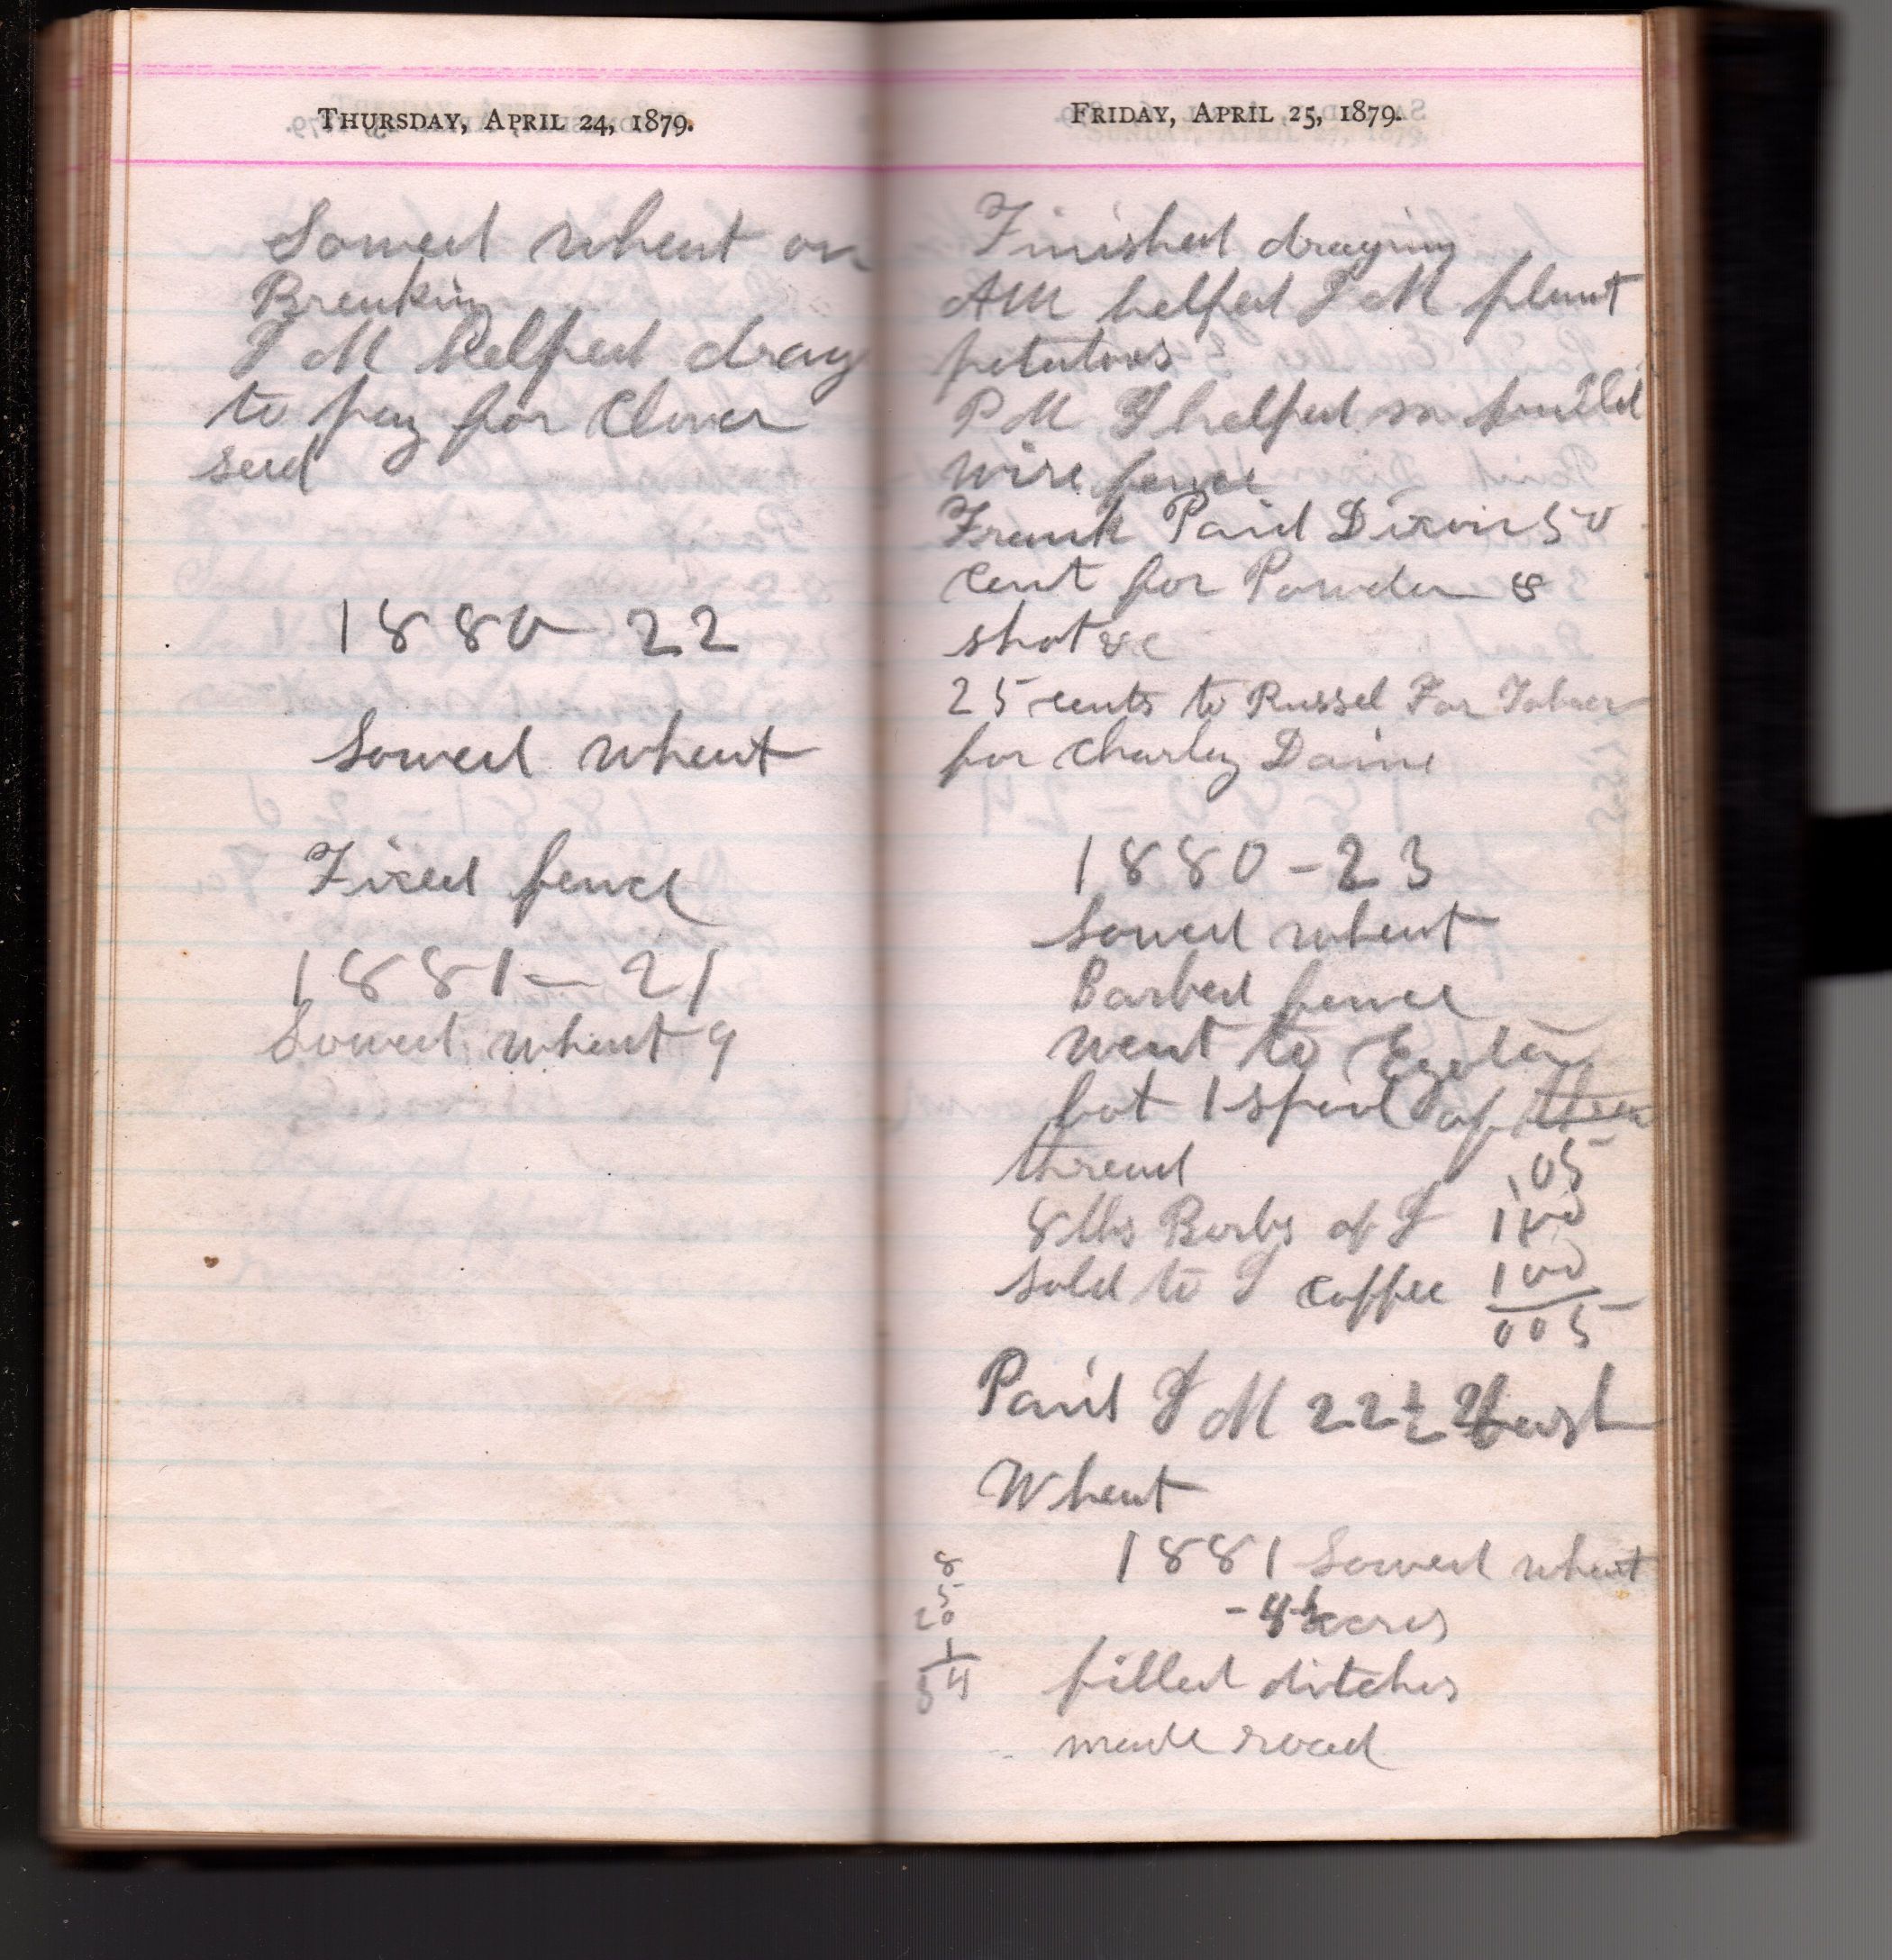 THURSDAY, APRIL 24, 1879.
Sowed wheat on
Breaking
I M helped drag
to pay for Clover
seed
1880 22
Sowed wheat
Fixed fence
1881 - 21
Sowed wheat 9
FRIDAY, APRIL 25, 1879.
Finished draging
AM helped I M plant
potatoes
PM I helped build
wire fence
Frank Paid Dixon 50
cent for Powder &
shot &c
25 cents to Russel For Tobac
for Charley Daine
1880 - 23
Sowed wheat
Barbed fence
went to
bot 1 spool of
thread .05
8 lbs Barbs of I 100
sold to I coffee 100
005
Paid I M 22 1/2 bush
Wheat
1881 Sowed wheat
- 4 1/2 acres
filled ditches
made road
8
5
20
1
34